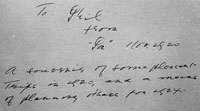 To Phil
from
"Pa" Nov 1920
A souvenir of some pleasant
Trips in 1920, and a means
of planning others for 1921.